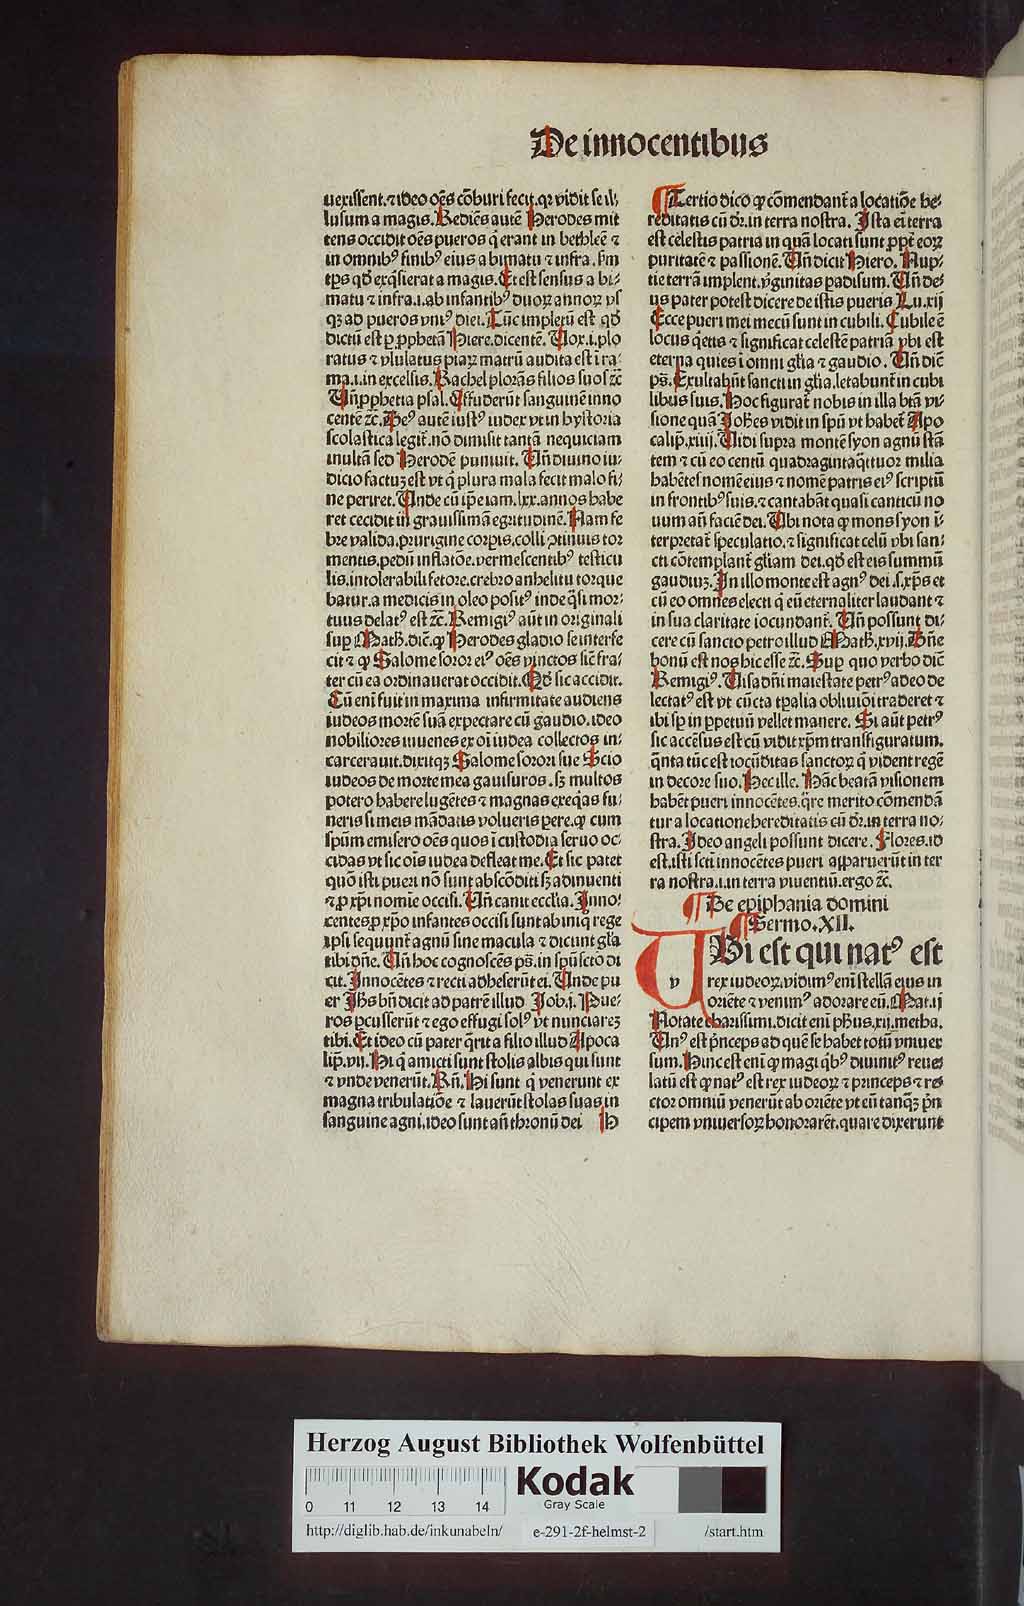 De innocentibus
uexissent.⁊ ideo oēs cōburi fecit.qꝛ vidit se il-
lusum a magis.Rediēs autē Herodes mit
tens occidit oēs pueros q̄ erant in bethleē ⁊
in omnibꝰ finibꝰ eius a bimatu ⁊ infra.
tp̄s qd̄ exq̄sierat a magis.Et est sensus a bi-
matu ⁊ infra.i.ab infantibꝰ duoꝝ annoꝝ vs
qꝫ ad pueros vniꝰ diei.Tūc impletū est qd̄
dictū est ꝑ ꝓphetā Hiere.dicentē.Vox.i.plo
ratus ⁊ vlulatus piaꝝ matrū audita est ī ra-
ma.i.in excelsis.Rachel plorās filios suos ⁊c̄
Vn̄ ꝓphetia psal.Effuderūt sanguinē inno
centē ⁊c̄. autē iustꝰ iudex vt in hystoria
scolastica legit̄.nō dimisit tantā nequiciam
inultā sed Herodē puniuit.Vn̄ diuino iu-
dicio factuꝫ est vt q̄ plura mala fecit malo fi-
ne periret.Unde cū ip̄e iam.lxx.annos habe
ret cecidit in grauissimā egritudinē.Nam fe
bre valida.prurigine corꝑis.colli ꝯtinuis tor
mentis.pedū inflatōe.vermescentibꝰ testicu
lis.intolerabili fetore.crebro anhelitu torque
batur.a medicis in oleo positꝰ inde q̄si mor-
tuus delatꝰ est ⁊c̄.Remigiꝰ aūt in originali
suꝑ Math.dic̄.ꝙ Herodes gladio se interfe
cit ⁊ ꝙ Salome soror eiꝰ oēs vinctos sic̄ fra-
ter cū ea ordinauerat occidit.Qd̄ sic accidit.
Cū enī fuit in maxima infirmitate audiens
iudeos mortē suā expectare cū gaudio.ideo
nobiliores iuuenes ex oī iudea collectos in-
carcerauit.dixitqꝫ Salome sorori sue Scio
iudeos de morte mea gauisuros.sꝫ multos
potero habere lugētes ⁊ magnas exeq̄as fu-
neris si meis mādatis volueris ꝑere.ꝙ cum
spūm emisero oēs quos ī custodia seruo oc-
cidas vt sic oīs iudea defleat me.Et sic patet
quō isti pueri nō sunt absconditi sꝫ adinuenti
⁊ ꝓ xp̄i nomīe occisi.Vn̄ canit ecclīa.Inno-
centes ꝓ xp̄o infantes occisi sunt ab iniq̄ rege
ip̄si sequunt̄ agnū sine macula ⁊ dicunt glīa
tibi dn̄e.Vn̄ hoc cognoscēs ps̄.in spū scto di
cit.Innocētes ⁊ recti adheserūt ei.Unde pu
er Jhs̄ bn̄ dicit ad patrē illud Job.j.Pue-
ros ꝑcusserūt ⁊ ego effugi solꝰ vt nunciareꝫ
tibi.Et ideo cū pater q̄rit a filio illud Apoca
lip̄.vij.Hi q̄ amicti sunt stolis albis qui sunt
⁊ vnde venerūt.Rn̄.Hi sunt q̄ venerunt ex
magna tribulatiōe ⁊ lauerūt stolas suas in
sanguine agni.ideo sunt añ thronū dei H
¶Tertio dico ꝙ cōmendant̄ a locatiōe he-
reditatis cū dr̄.in terra nostra.Ista em̄ terra
est celestis patria in quā locati sunt ꝓpt̄ eoꝝ
puritatē ⁊ passionē.Vn̄ dicit Hiero.Nup-
tie terrā implent.v̄ginitas padisum.Vn̄ de-
us pater potest dicere de istis pueris Lu.xij
Ecce pueri mei mecū sunt in cubili.Cubile ē
locus q̄etis ⁊ significat celestē patriā vbi est
eterna quies ī omni glīa ⁊ gaudio.Vn̄ dic̄
ps̄.Exultabūt sancti in glīa.letabunt̄ in cubi
libus suis.Hoc figurat̄ nobis in illa btā vi-
sione quā Joh̄es vidit in spū vt habet̄ Apo
calip̄.xiiij.Vidi supra montē syon agnū stā
tem ⁊ cū eo centū quadragintaq̄ttuor milia
habētes nomē eius ⁊ nomē patris eiꝰ scriptū
in frontibꝰ suis.⁊ cantabāt quasi canticū no
uum añ faciē dei.Ubi nota ꝙ mons syon ī-
terpretat̄ speculatio.⁊ significat celū vbi san-
cti cōtemplant̄ glīam dei.qd̄ est eis summū
gaudiuꝫ.In illo monte est agnꝰ dei.s.xp̄s et
cū eo omnes electi q̄ eū eternaliter laudant ⁊
in sua claritate iocundant̄.Vn̄ possunt di-
cere cū sancto petro illud Math.xvij.Dn̄e
bonū est nos hic esse ⁊c̄.Suꝑ quo verbo dic̄
Remigiꝰ.Uisa dn̄i maiestate petrꝰ adeo de
lectatꝰ est vt cūcta tꝑalia obliuiōi traderet ⁊
ibi sꝑ in ꝑpetuū vellet manere.Si aūt petrꝰ
sic accēsus est cū vidit xp̄m transfiguratum.
q̄nta tūc est iocūditas sanctoꝝ q̄ vident regē
in decore suo.Hec ille.Hāc beatā visionem
habēt pueri innocētes.q̄re merito cōmendā
tur a locatione hereditatis cū dr̄.in terra no-
stra.Ideo angeli possunt dicere.Flores.id
est.isti scti innocētes pueri apparuerūt in ter
ra nostra.i.in terra viuentiū.ergo ⁊c̄.
¶De epiphania domini
¶Sermo.XII.
UBi est qui natꝰ est
v
rex iudeoꝝ.vidimꝰ enī stellā eius in
oriēte ⁊ venimꝰ adorare eū.Mat.ij
Notate charissimi.dicit enī phūs.xij.metha.
Unꝰ est pn̄ceps ad quē se habet totū vniuer
sum.Hinc est enī ꝙ magi qͥbꝰ diuinitꝰ reue-
latū est ꝙ natꝰ est rex iudeoꝝ ⁊ princeps ⁊ re-
ctor omniū venerūt ab oriēte vt eū tanqꝫ pn̄
cipem vniuersoꝝ honorarēt.quare dixerunt
Herzog August Bibliothek Wolfenbüttel
0 11 12 13 14
Kodak
Gray Scale
http://diglib.hab.de/inkunabeln/ e-291-2f-helmst-2 /start.htm